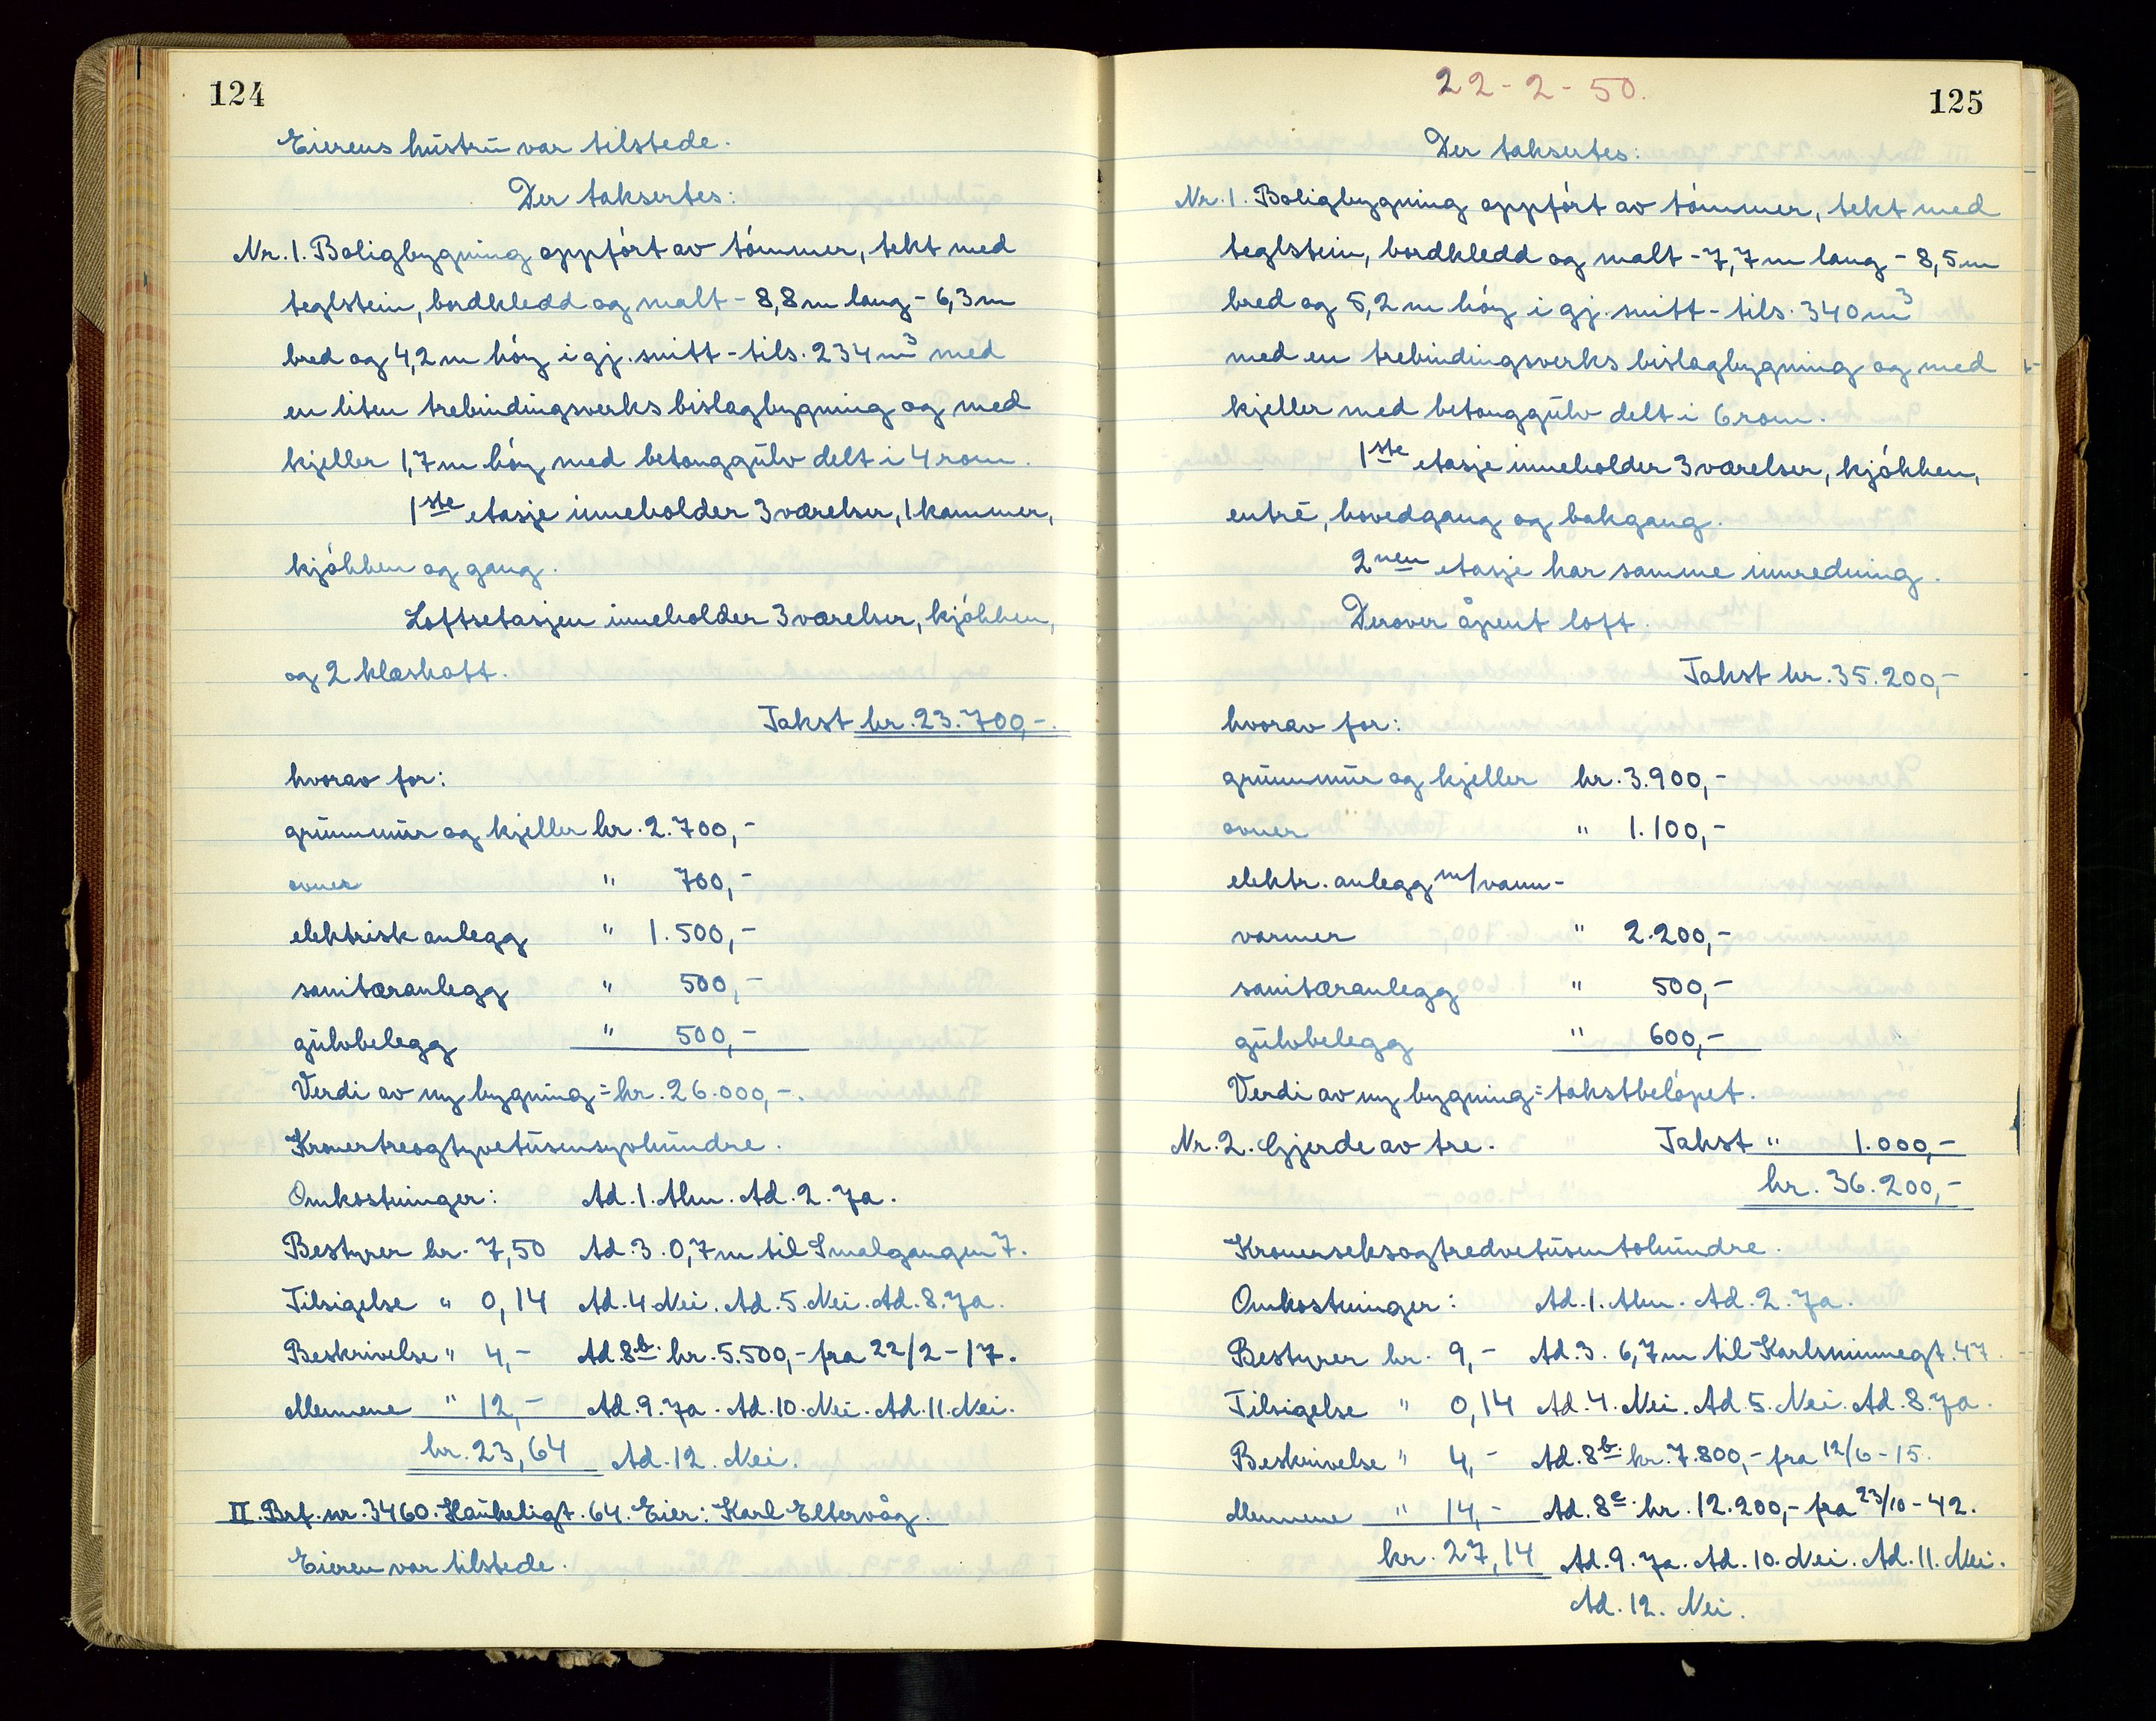 124
Eierens hustru var tilstede.
Der taksertes:
Nr. 1. Boligbygning oppført av tømmer, tekt med
teglstein, bordkledd og malt - 8,8 m lang - 6,3 m
bred og 4,2 m høy i gj. snitt - tils. 234 m³ med
en liten trebindingsverks bislagbygning og med
kjeller 1,7 m høy med betonggulv delt i 4 rom.
1ste etasje inneholder 3 værelser, 1 kammer,
kjøkken og gang.
Loftsetasjen inneholder 3 værelser, kjøkken,
og 2 kleskott.
Takst kr. 23.700,-.
hvorav for:
grunnmur og kjeller kr. 2.700,-
ovner " 700,-
elektrisk anlegg " 1.500,-
sanitæranlegg " 500,-
gulvbelegg " 500,-
Verdi av ny bygning = kr. 26.000,-.
Kronertreogtyvetusensyvhundre.
Omkostninger: Ad. 1. Alm. Ad. 2. Ja.
Bestyrer kr. 7,50 Ad. 3. 0,7 m til Smalgangen 7.
Tilsigelse " 0,14 Ad. 4 Nei. Ad. 5. Nei. Ad. 8. Ja.
Beskrivelse " 4,- Ad 8b. kr. 5.500,- fra 22/2-17.
Mennene " 12,- Ad. 9. Ja. Ad. 10. Nei. Ad. 11. Nei.
kr. 23,64 Ad. 12. Nei.
II. Brf. nr. 3460. Haukeligt. 64. Eier: Karl Eltervåg.
Eieren var tilstede.
22-2-50.
125
Der taksertes:
Nr. 1. Boligbygning oppført av tømmer, tekt med
teglstein, bordkledd og malt - 7,7 m lang - 8,5 m
bred og 5,2 m høy i gj. snitt - tils. 340 m³
med en trebindingsverks bislagbygning og med
kjeller med betonggulv delt i 6 rom.
1ste etasje inneholder 3 værelser, kjøkken,
entré, hovedgang og bakgang.
2nen etasje har samme innredning.
Derover åpent loft.
Takst kr. 35.200,-
hvorav for:
grunnmur og kjeller kr. 3.900,-
ovner " 1.100,-
elektr. anlegg m/vann-
varmer " 2.200,-
sanitæranlegg " 500,-
gulvbelegg " 600,-
Verdi av ny bygning = takstbeløpet.
Nr. 2. Gjerde av tre. Takst " 1.000,-
kr. 36.200,-
Kronerseksogtredvetusentohundre.
Omkostninger: Ad. 1. Alm. Ad. 2. Ja.
Bestyrer kr. 9,- Ad. 3. 6,7 m til Karlsminnegt. 47.
Tilsigelse " 0,14 Ad. 4. Nei. Ad. 5. Nei. Ad. 8. Ja.
Beskrivelse " 4,- Ad. 8b. kr. 7.800,- fra 12/6-15.
Mennene " 14,- Ad. 8c. kr. 12.200,- fra 23/10-42.
kr. 27,14 Ad. 9. Ja. Ad. 10. Nei. Ad. 11. Nei.
Ad. 12. Nei.